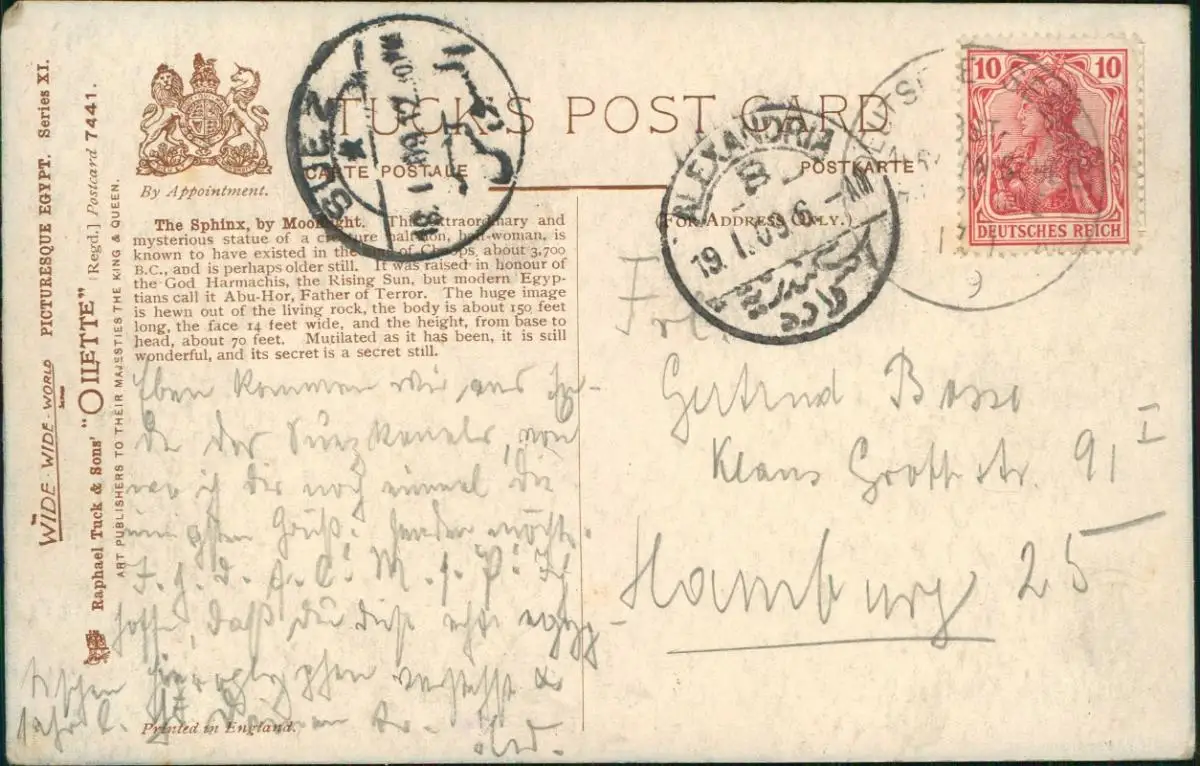 WIDE-WIDE-WORLD
Series
PICTURESQUE EGYPT. Series XI.
Raphael Tuck & Sons' "OILETTE" [Regd.] Postcard 7441.
ART PUBLISHERS TO THEIR MAJESTIES THE KING & QUEEN.
By Appointment.
TUCK'S POST CARD
CARTE POSTALE
POSTKARTE
(FOR ADDRESS ONLY.)
SUEZ
ALEXANDRIA
19. I. 09. 6 - AM
10 10
DEUTSCHES REICH
The Sphinx, by Moonlight. This extraordinary and
mysterious statue of a creature half-lion, half-woman, is
known to have existed in the time of Cheops, about 3,700
B.C., and is perhaps older still. It was raised in honour of
the God Harmachis, the Rising Sun, but modern Egyp-
tians call it Abu-Hor, Father of Terror. The huge image
is hewn out of the living rock, the body is about 150 feet
long, the face 14 feet wide, and the height, from base to
head, about 70 feet. Mutilated as it has been, it is still
wonderful, and its secret is a secret still.
Eben kommen wir ans En-
de des Suezkanals, von
wo ich dir noch einmal die
innigsten Grüße senden möchte.
hoffe, daß du diese echt egyp-
tischen Hieroglyphen verstehst
Printed in England.
Gertrud
Klaus Groth str. 91 I
Hamburg 25